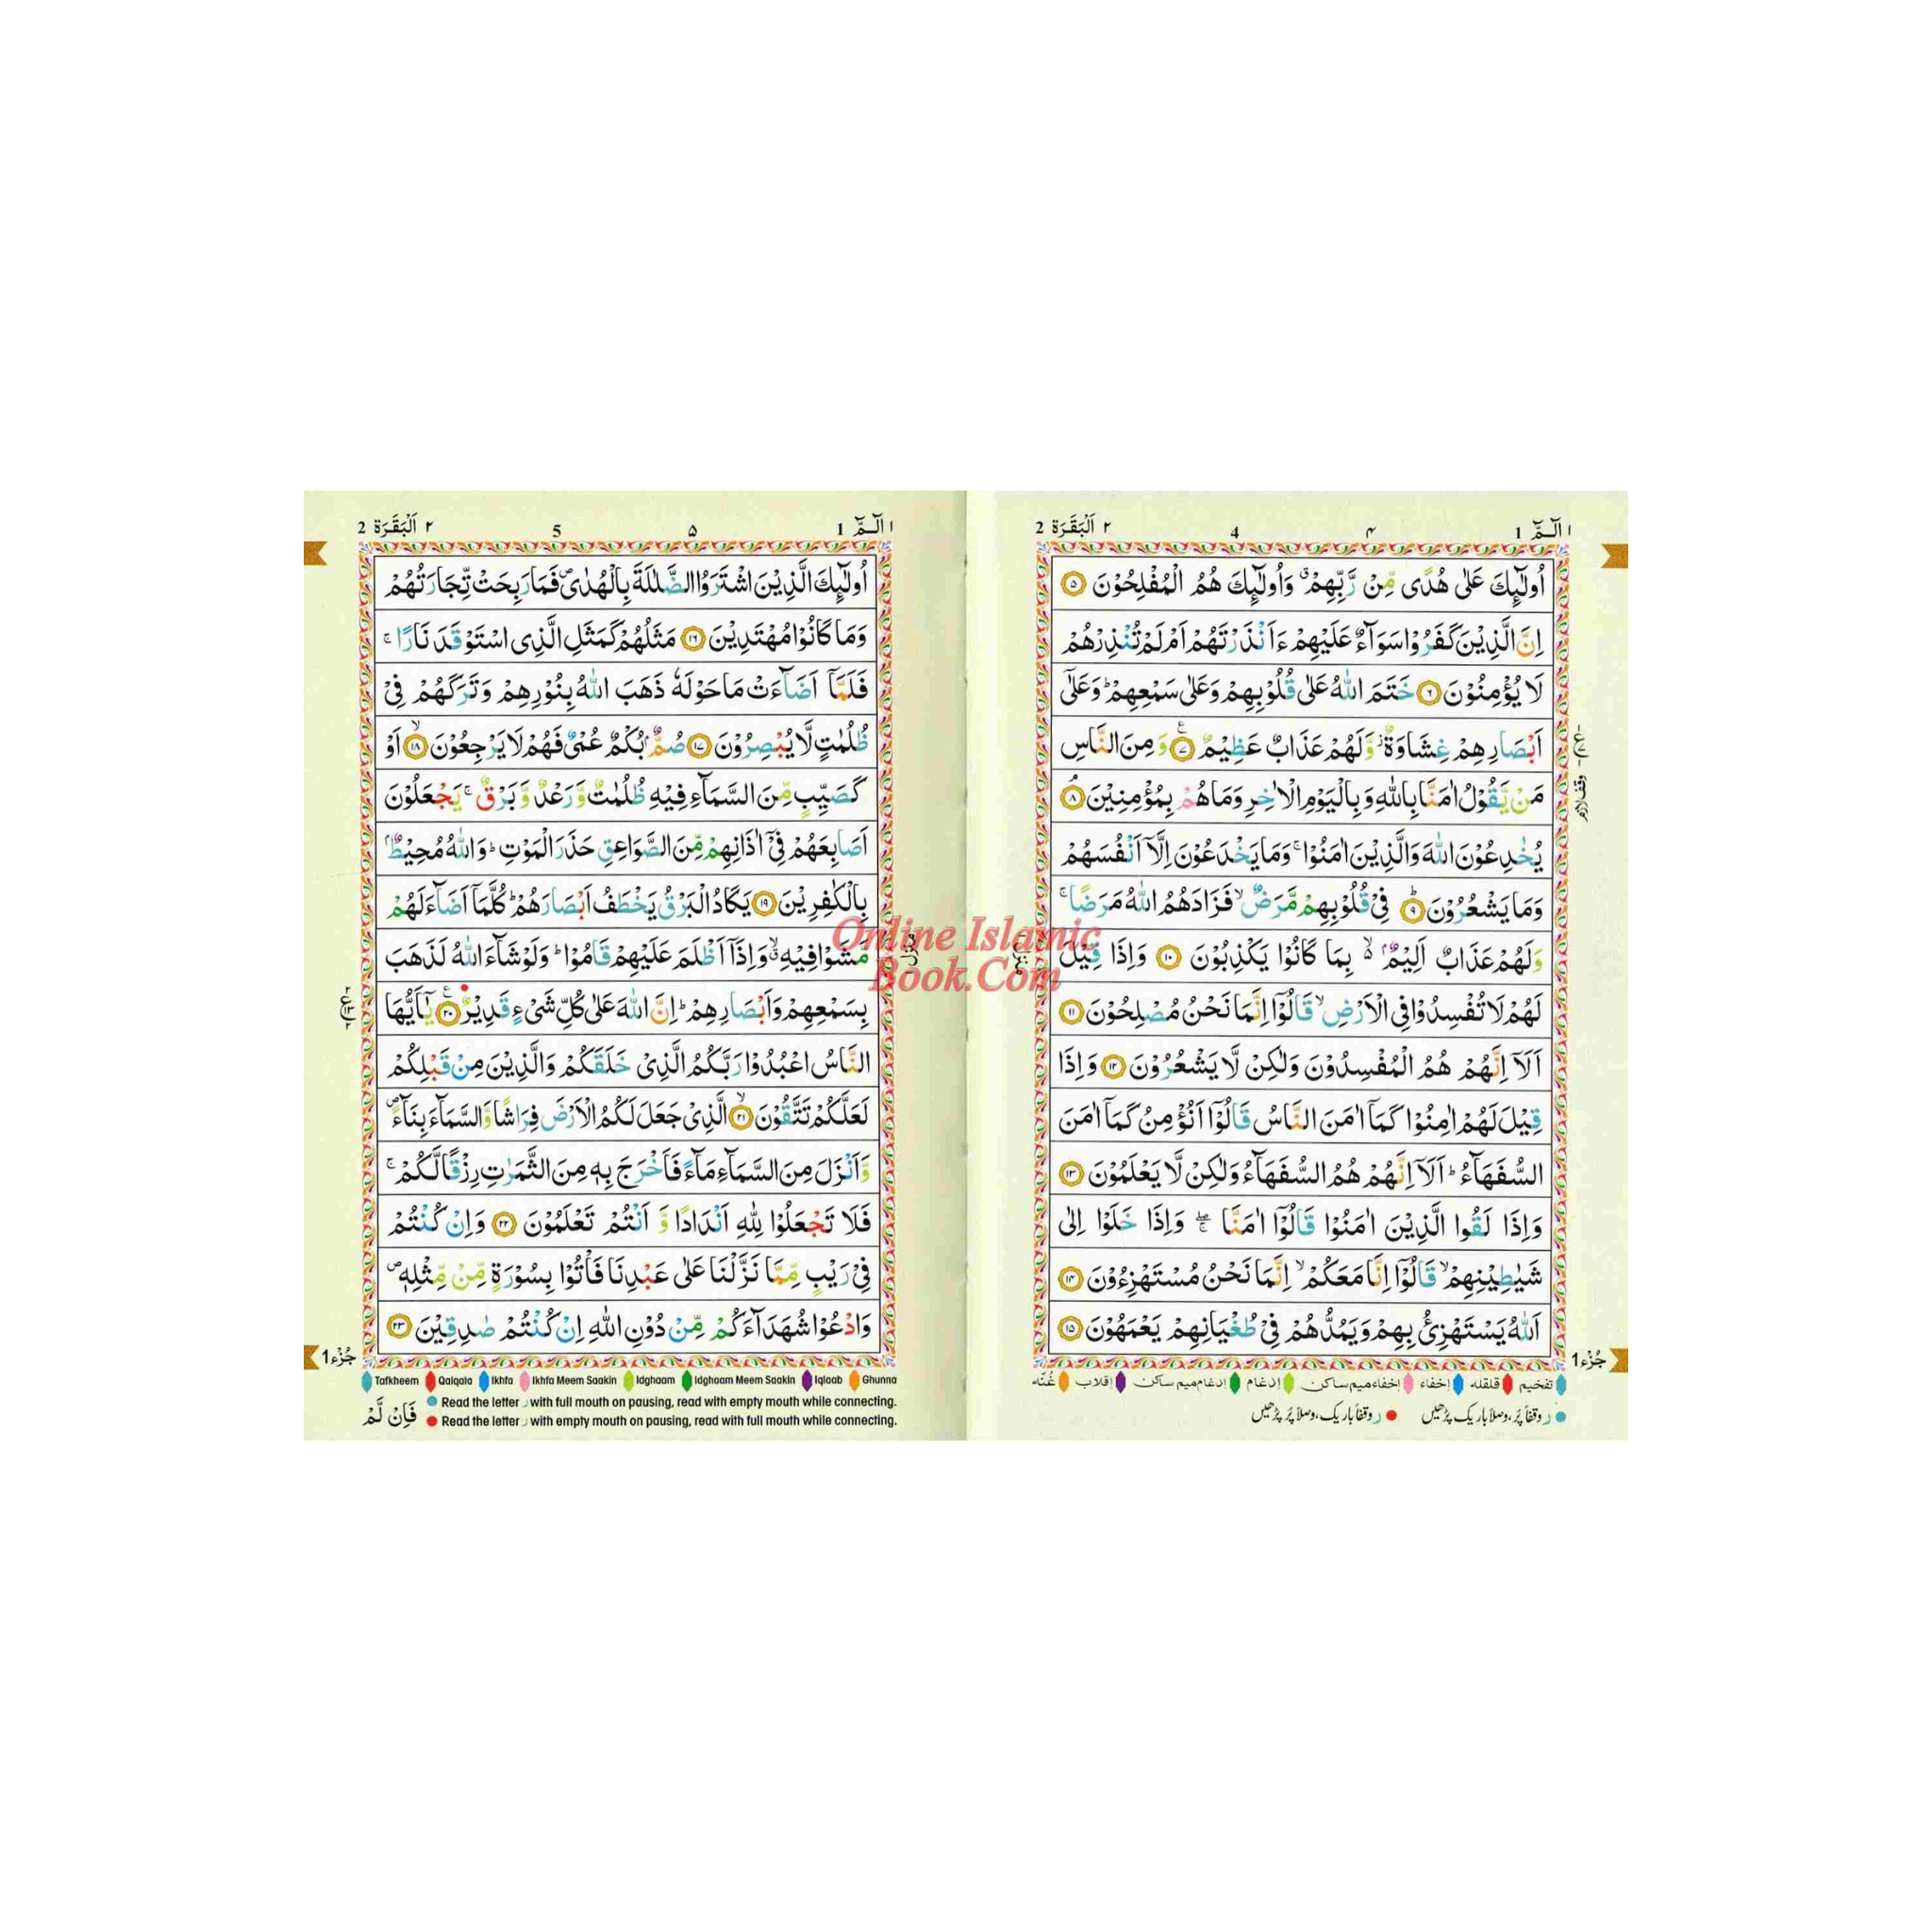 ١ الٓـمّٓ 1
۴
4
٢ اَلْبَقَرَة 2
اُولٰٓئِكَ عَلٰى هُدًى مِّنْ رَّبِّهِمْ ۙ وَاُولٰٓئِكَ هُمُ الْمُفْلِحُوْنَ ۵
اِنَّ الَّذِيْنَ كَفَرُوْا سَوَآءٌ عَلَيْهِمْ ءَاَنْذَرْتَهُمْ اَمْ لَمْ تُنْذِرْهُمْ
لَا يُؤْمِنُوْنَ ۶ خَتَمَ اللّٰهُ عَلٰى قُلُوْبِهِمْ وَعَلٰى سَمْعِهِمْ ؕ وَعَلٰٓى
اَبْصَارِهِمْ غِشَاوَةٌ ز وَّلَهُمْ عَذَابٌ عَظِيْمٌ ۷ وَمِنَ النَّاسِ
مَنْ يَّقُوْلُ اٰمَنَّا بِاللّٰهِ وَبِالْيَوْمِ الْاٰخِرِ وَمَا هُمْ بِمُؤْمِنِيْنَ ۘ ۸
يُخٰدِعُوْنَ اللّٰهَ وَالَّذِيْنَ اٰمَنُوْا ۚ وَمَا يَخْدَعُوْنَ اِلَّآ اَنْفُسَهُمْ
وَمَا يَشْعُرُوْنَ ؕ ۹ فِىْ قُلُوْبِهِمْ مَّرَضٌ ۙ فَزَادَهُمُ اللّٰهُ مَرَضًا ۚ
وَلَهُمْ عَذَابٌ اَلِيْمٌۢ ۙ بِمَا كَانُوْا يَكْذِبُوْنَ ۱۰ وَاِذَا قِيْلَ
لَهُمْ لَا تُفْسِدُوْا فِى الْاَرْضِ ۙ قَالُوْٓا اِنَّمَا نَحْنُ مُصْلِحُوْنَ ۱۱
اَلَآ اِنَّهُمْ هُمُ الْمُفْسِدُوْنَ وَلٰكِنْ لَّا يَشْعُرُوْنَ ۱۲ وَاِذَا
قِيْلَ لَهُمْ اٰمِنُوْا كَمَآ اٰمَنَ النَّاسُ قَالُوْٓا اَنُؤْمِنُ كَمَآ اٰمَنَ
السُّفَهَآءُ ؕ اَلَآ اِنَّهُمْ هُمُ السُّفَهَآءُ وَلٰكِنْ لَّا يَعْلَمُوْنَ ۱۳
وَاِذَا لَقُوا الَّذِيْنَ اٰمَنُوْا قَالُوْٓا اٰمَنَّا ۚۖ وَاِذَا خَلَوْا اِلٰى
شَيٰطِيْنِهِمْ ۙ قَالُوْٓا اِنَّا مَعَكُمْ ۙ اِنَّمَا نَحْنُ مُسْتَهْزِءُوْنَ ۱۴
اَللّٰهُ يَسْتَهْزِئُ بِهِمْ وَيَمُدُّهُمْ فِىْ طُغْيَانِهِمْ يَعْمَهُوْنَ ۱۵
وقف لازم
جُزْء1
تفخیم قلقلہ إخفاء إخفاء میم ساکن إدغام إدغام میم ساکن إقلاب غُنّه
ر وقفاً پُر، وصلاً باریک پڑھیں ر وقفاً باریک، وصلاً پُر پڑھیں
١ الٓـمّٓ 1
۵
5
٢ اَلْبَقَرَة 2
اُولٰٓئِكَ الَّذِيْنَ اشْتَرَوُا الضَّلٰلَةَ بِالْهُدٰى ص فَمَا رَبِحَتْ تِّجَارَتُهُمْ
وَمَا كَانُوْا مُهْتَدِيْنَ ۱۶ مَثَلُهُمْ كَمَثَلِ الَّذِى اسْتَوْقَدَ نَارًا ۚ
فَلَمَّآ اَضَآءَتْ مَا حَوْلَهٗ ذَهَبَ اللّٰهُ بِنُوْرِهِمْ وَتَرَكَهُمْ فِىْ
ظُلُمٰتٍ لَّا يُبْصِرُوْنَ ۱۷ صُمٌّۢ بُكْمٌ عُمْىٌ فَهُمْ لَا يَرْجِعُوْنَ ۙ ۱۸ اَوْ
كَصَيِّبٍ مِّنَ السَّمَآءِ فِيْهِ ظُلُمٰتٌ وَّرَعْدٌ وَّبَرْقٌ ۚ يَجْعَلُوْنَ
اَصَابِعَهُمْ فِىْٓ اٰذَانِهِمْ مِّنَ الصَّوَاعِقِ حَذَرَ الْمَوْتِ ؕ وَاللّٰهُ مُحِيْطٌۢ
بِالْكٰفِرِيْنَ ۱۹ يَكَادُ الْبَرْقُ يَخْطَفُ اَبْصَارَهُمْ ؕ كُلَّمَآ اَضَآءَ لَهُمْ
مَّشَوْا فِيْهِ ۙ وَاِذَآ اَظْلَمَ عَلَيْهِمْ قَامُوْا ؕ وَلَوْ شَآءَ اللّٰهُ لَذَهَبَ
بِسَمْعِهِمْ وَاَبْصَارِهِمْ ؕ اِنَّ اللّٰهَ عَلٰى كُلِّ شَىْءٍ قَدِيْرٌ ۲۰ يٰٓاَيُّهَا
النَّاسُ اعْبُدُوْا رَبَّكُمُ الَّذِىْ خَلَقَكُمْ وَالَّذِيْنَ مِنْ قَبْلِكُمْ
لَعَلَّكُمْ تَتَّقُوْنَ ۙ ۲۱ الَّذِىْ جَعَلَ لَكُمُ الْاَرْضَ فِرَاشًا وَّالسَّمَآءَ بِنَآءً ص
وَّاَنْزَلَ مِنَ السَّمَآءِ مَآءً فَاَخْرَجَ بِهٖ مِنَ الثَّمَرٰتِ رِزْقًا لَّكُمْ ۚ
فَلَا تَجْعَلُوْا لِلّٰهِ اَنْدَادًا وَّاَنْتُمْ تَعْلَمُوْنَ ۲۲ وَاِنْ كُنْتُمْ
فِىْ رَيْبٍ مِّمَّا نَزَّلْنَا عَلٰى عَبْدِنَا فَاْتُوْا بِسُوْرَةٍ مِّنْ مِّثْلِهٖ ص
وَادْعُوْا شُهَدَآءَكُمْ مِّنْ دُوْنِ اللّٰهِ اِنْ كُنْتُمْ صٰدِقِيْنَ ۲۳
منزل ١
جُزْء1
Tafkheem Qalqala Ikhfa Ikhfa Meem Saakin Idghaam Idghaam Meem Saakin Iqlaab Ghunna
Read the letter ر with full mouth on pausing, read with empty mouth while connecting.
Read the letter ر with empty mouth on pausing, read with full mouth while connecting.
فَاِنْ لَّمْ
Online Islamic
Book.Com